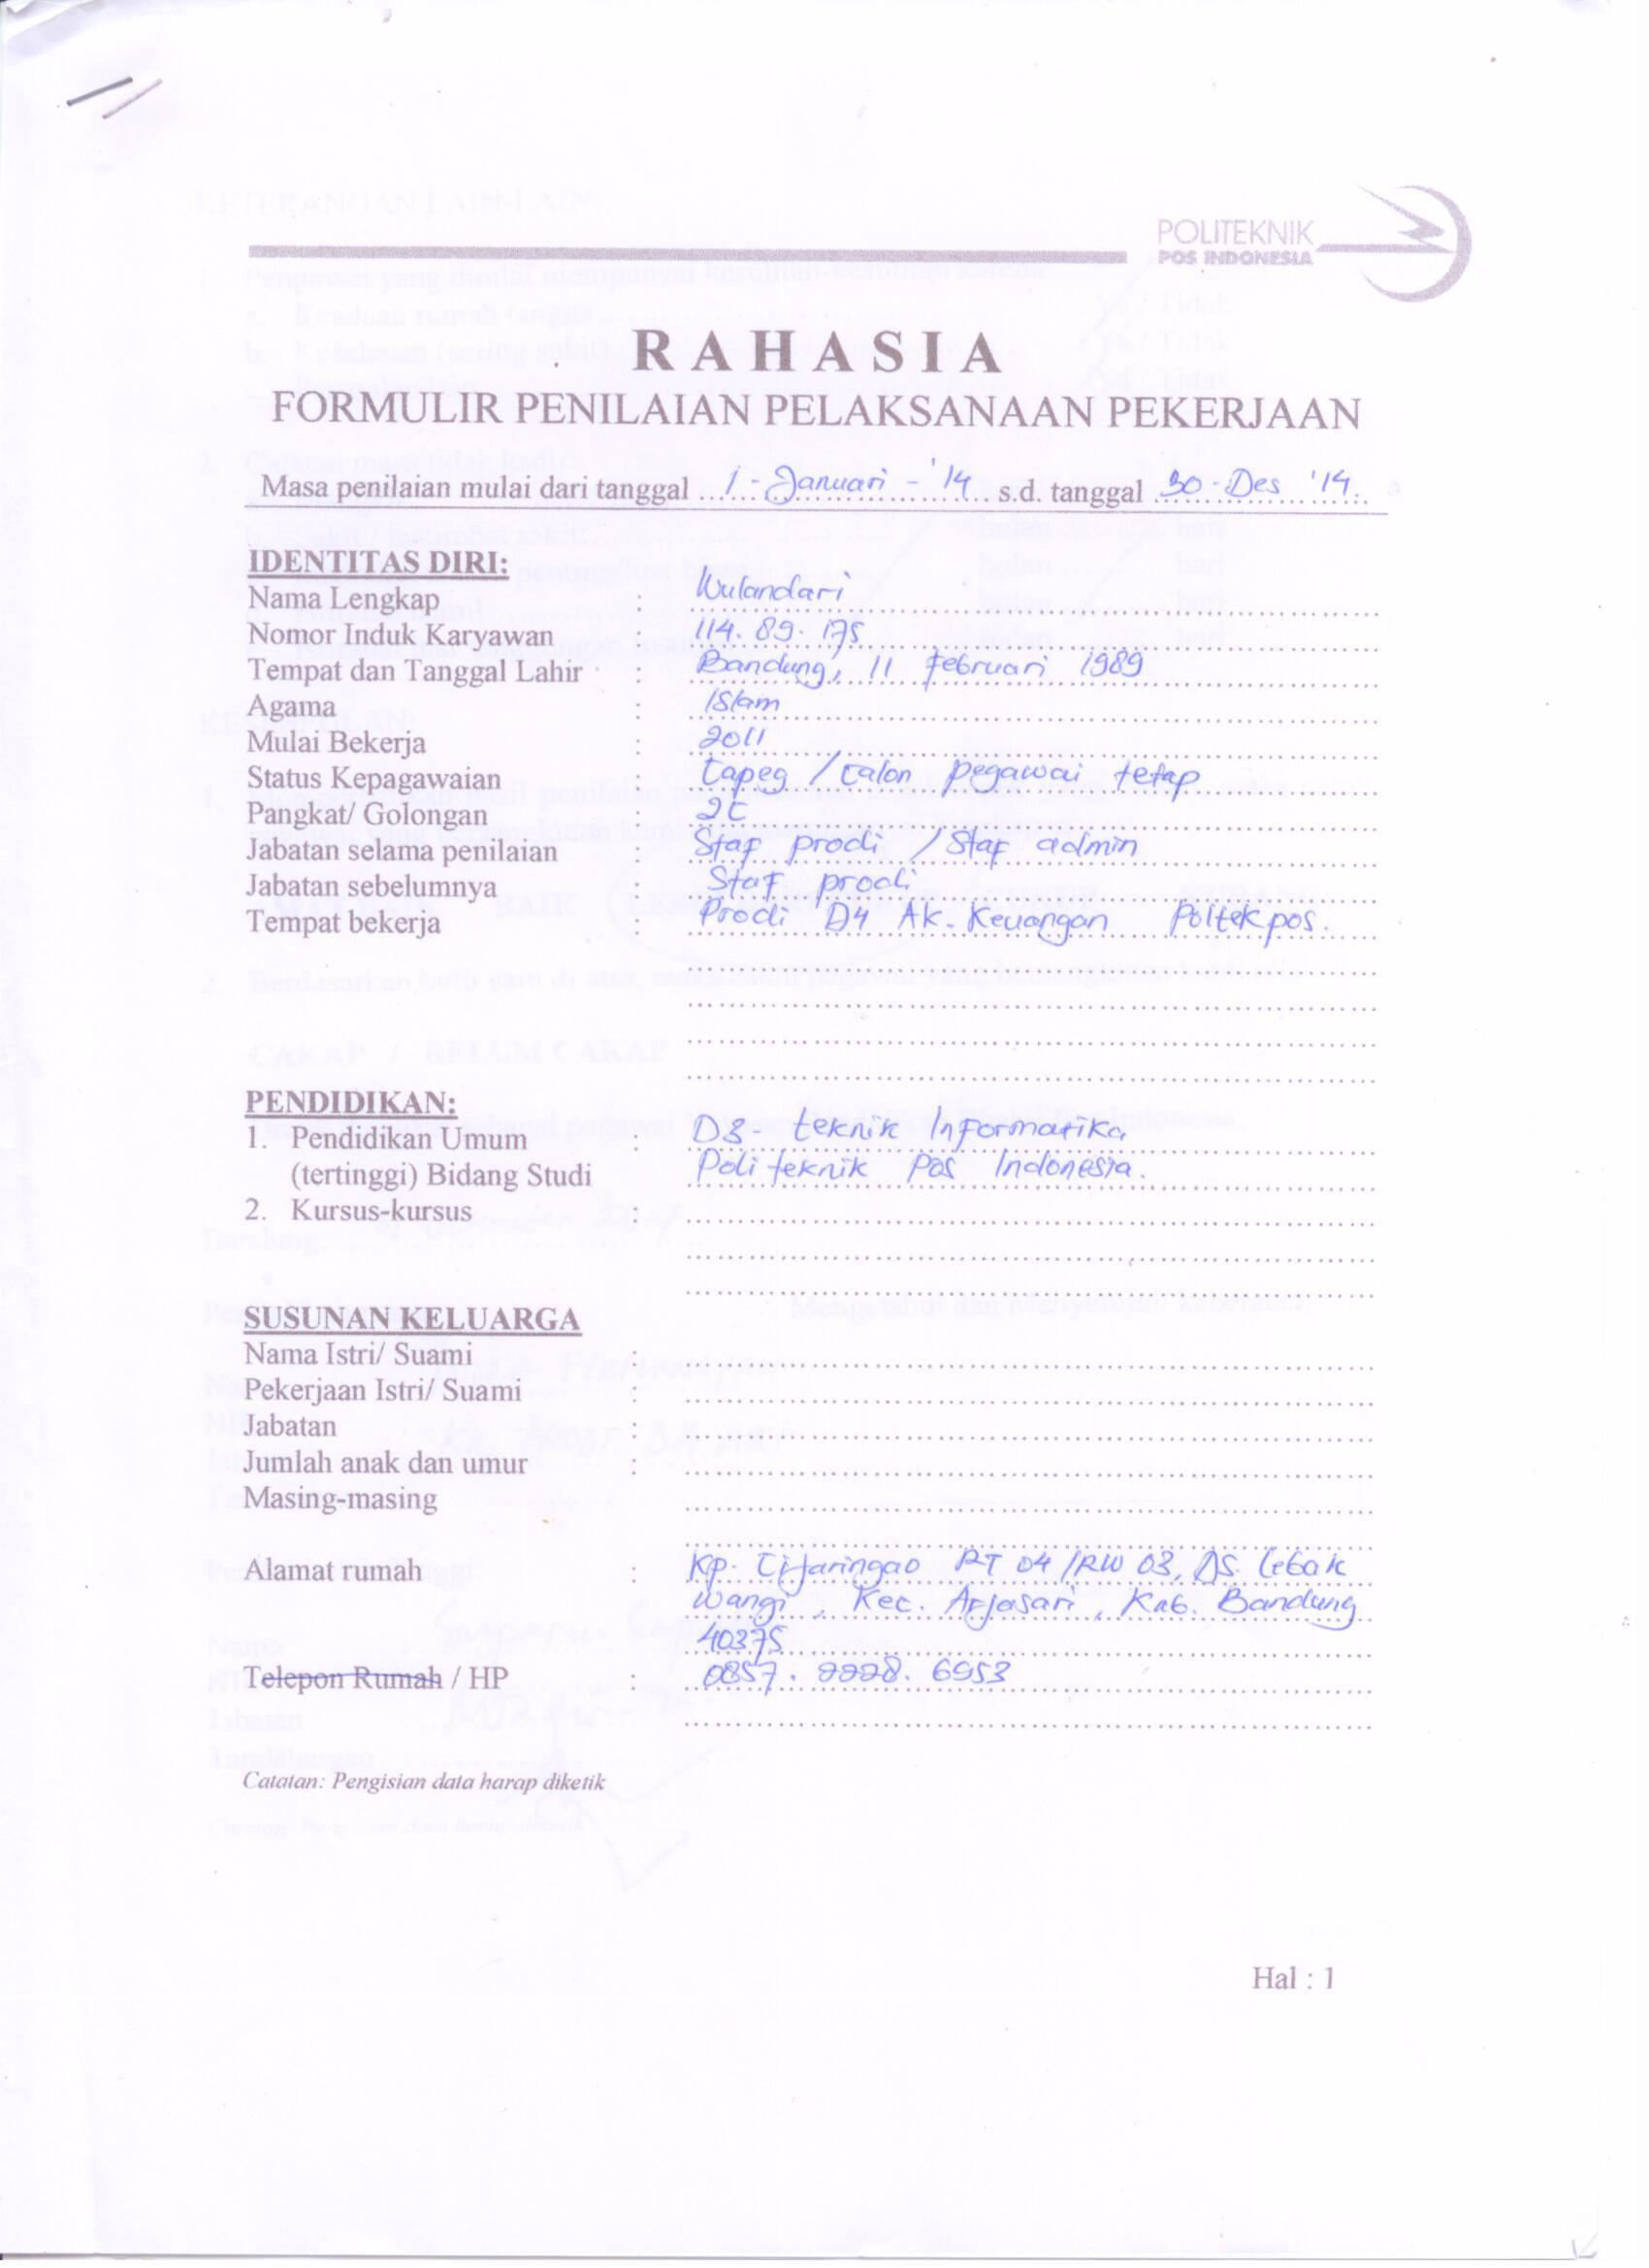 POLITEKNIK
POS INDONESIA
RAHASIA
FORMULIR PENILAIAN PELAKSANAAN PEKERJAAN
Masa penilaian mulai dari tanggal 1 - Januari - '14 s.d. tanggal 30 - Des '14.
IDENTITAS DIRI:
Nama Lengkap : Wulandari
Nomor Induk Karyawan : 114. 89. 175
Tempat dan Tanggal Lahir : Bandung, 11 Februari 1989
Agama : Islam
Mulai Bekerja : 2011
Status Kepagawaian : Capeg / Calon pegawai tetap
Pangkat/ Golongan : 2C
Jabatan selama penilaian : Staf prodi / Staf admin
Jabatan sebelumnya : Staf prodi
Tempat bekerja : Prodi D4 Ak. Keuangan Poltekpos.
PENDIDIKAN:
1. Pendidikan Umum : D3 - Teknik Informatika
(tertinggi) Bidang Studi Politeknik Pos Indonesia.
2. Kursus-kursus
SUSUNAN KELUARGA
Nama Istri/ Suami :
Pekerjaan Istri/ Suami :
Jabatan :
Jumlah anak dan umur :
Masing-masing
Alamat rumah : Kp. Cijaringao RT 04 /RW 03, DS. Lebak
wangi, Kec. Arjasari, Kab. Bandung
40375
Telepon Rumah / HP : 0857. 2228. 6953
Catatan: Pengisian data harap diketik
Hal : 1